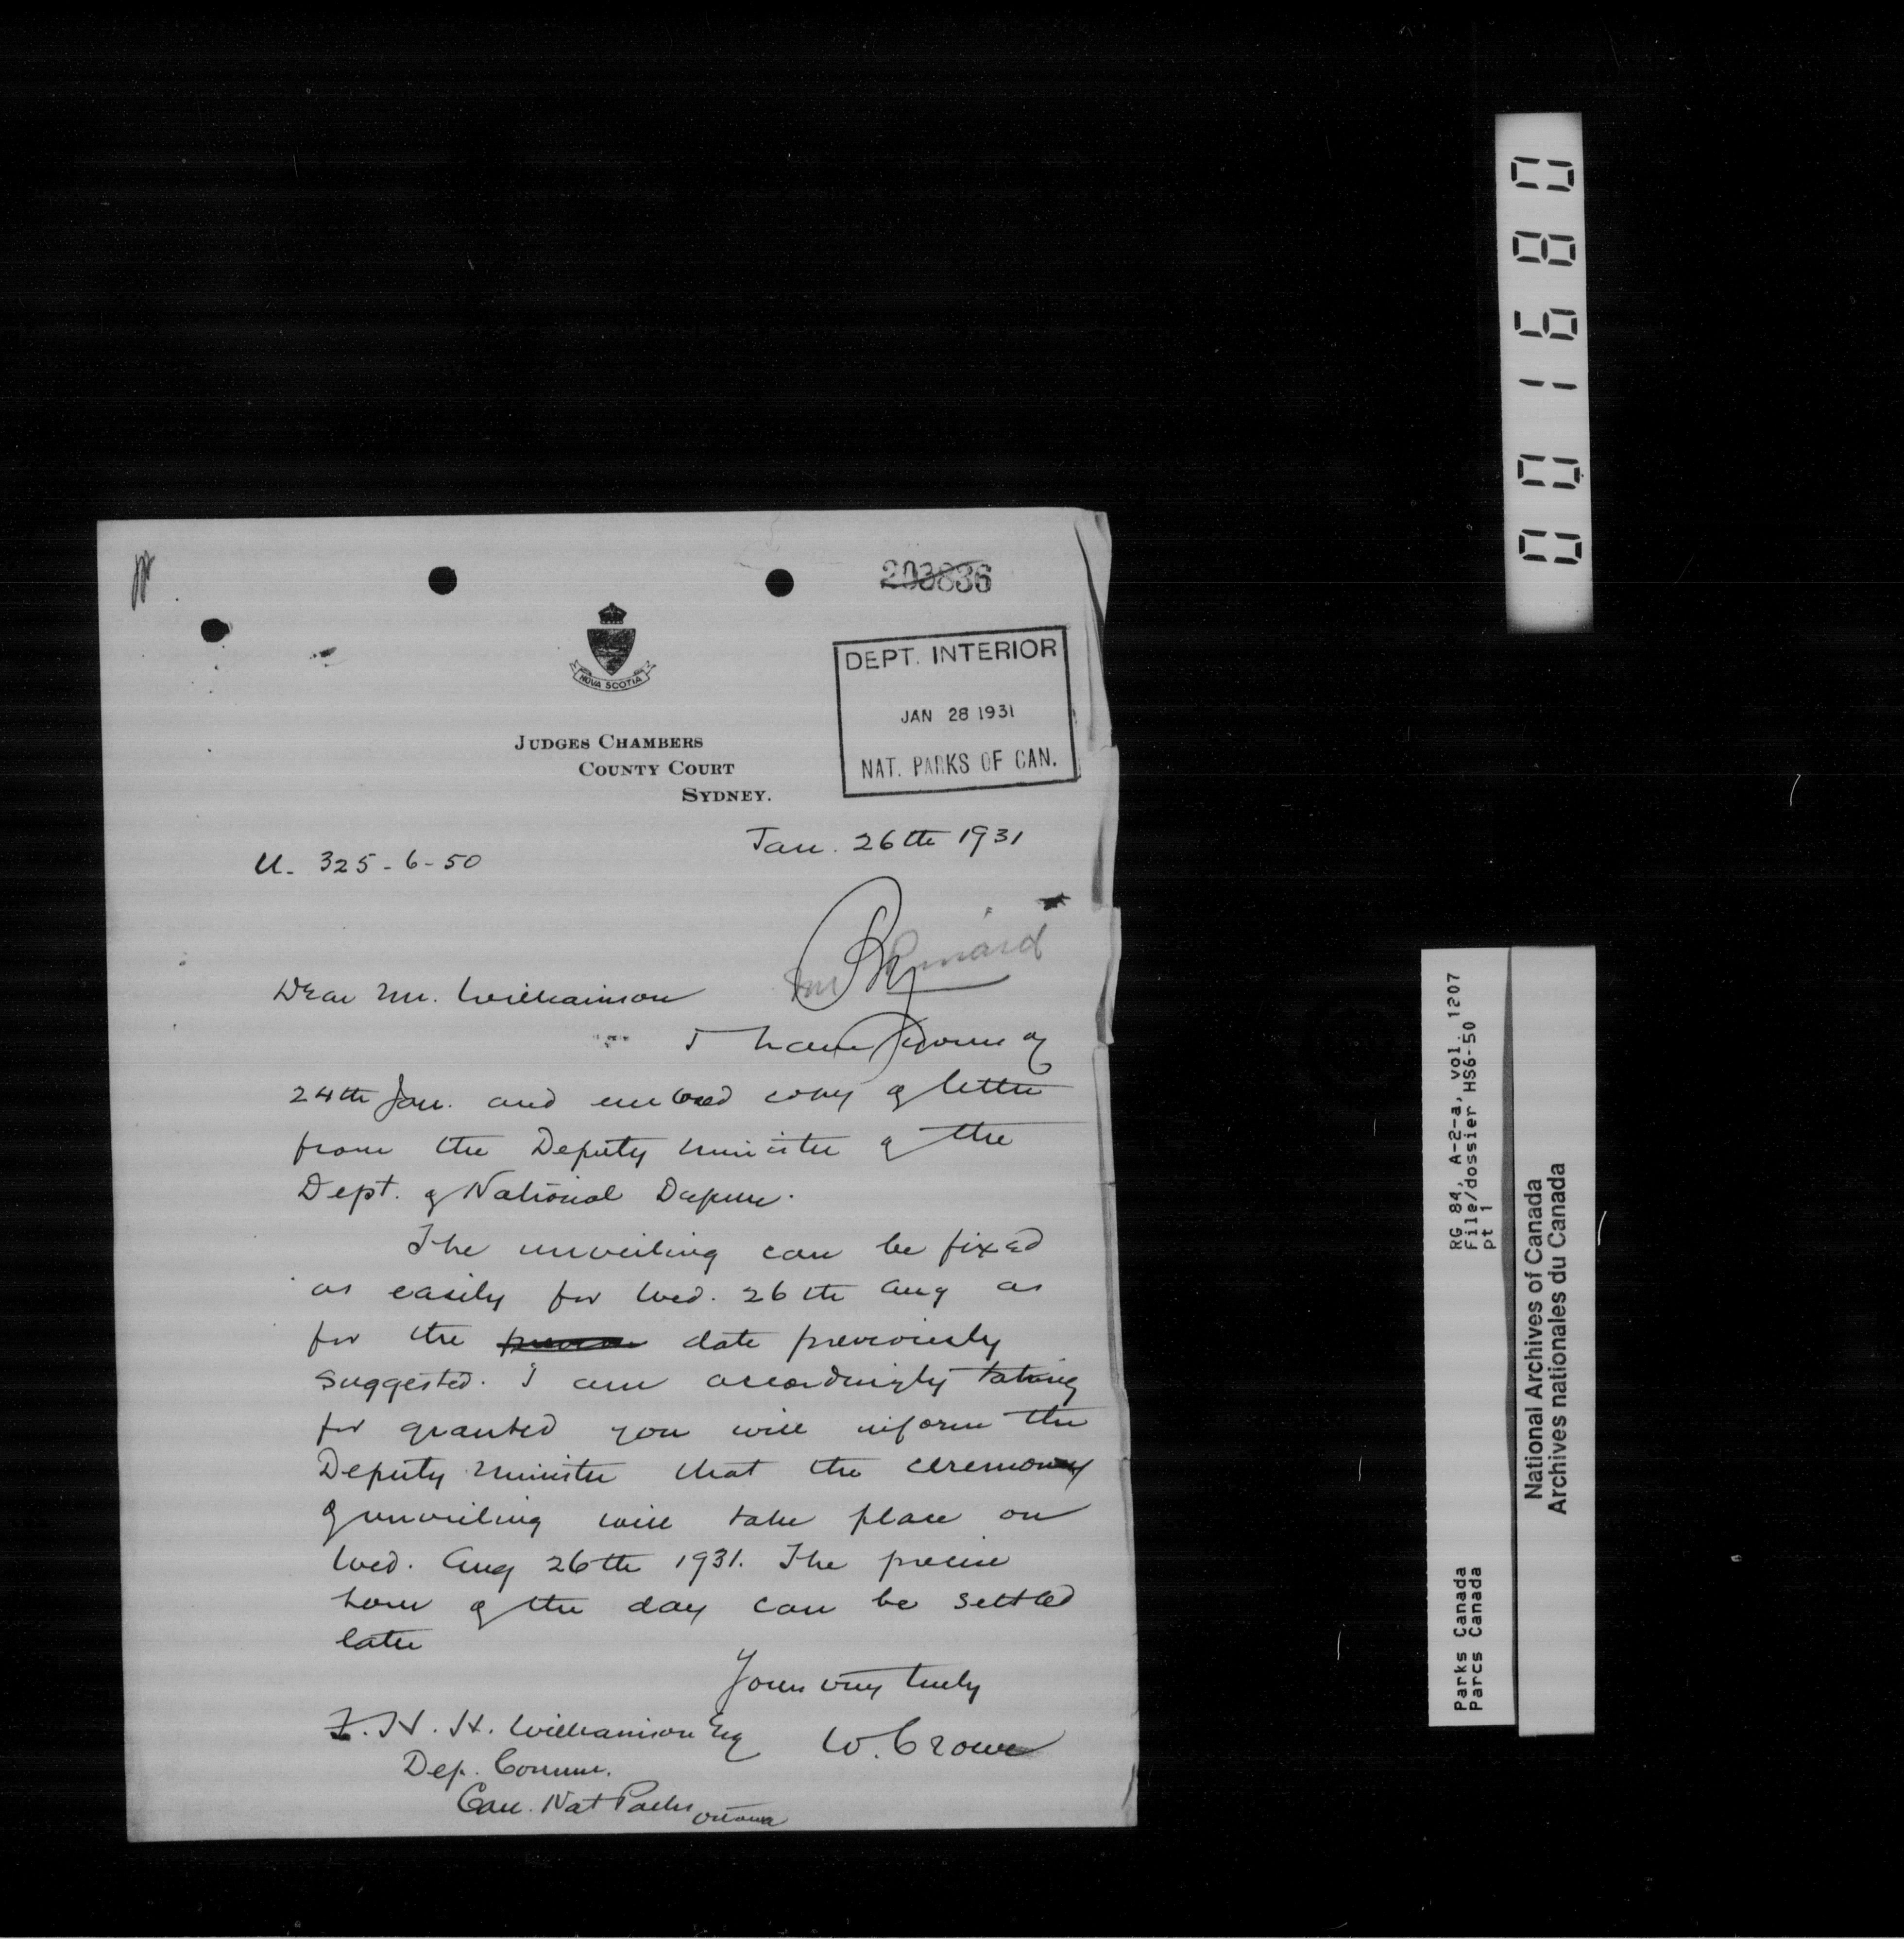 203836
NOVA SCOTIA
DEPT. INTERIOR
JAN 28 1931
NAT. PARKS OF CAN.
JUDGES CHAMBERS
COUNTY COURT
SYDNEY.
Jan. 26th 1931
U. 325-6-50
Dear Mr. Williamson
I have yours of
24th Jan. and enclosed copy of letter
from the Deputy Minister of the
Dept. of National Defense.
The unveiling can be fixed
as easily for Wed. 26th Aug as
for the date previously
suggested. I am accordingly taking
for granted you will inform the
Deputy Minister that the ceremony
of unveiling will take place on
Wed. Aug 26th 1931. The precise
hour of the day can be settled
later
Yours very truly
W. Crowe
F. H. H. Williamson Esq
Dep. Commr.
Can. Nat Parks Ottawa
001680
RG 84, A-2-a, vol. 1207
File/dossier HS6-50
pt 1
Parks Canada
Parcs Canada
National Archives of Canada
Archives nationales du Canada